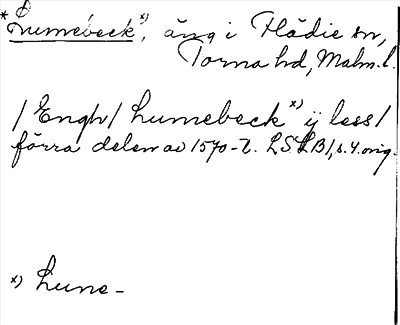 * Lumebeck *), äng i Flädie sn,
Torna hd, Malm. l.
/Engh/ Lumebeck *) ij less/
förra delen av 1570-t. LSLB1, s. 4. orig.
*) Lune-